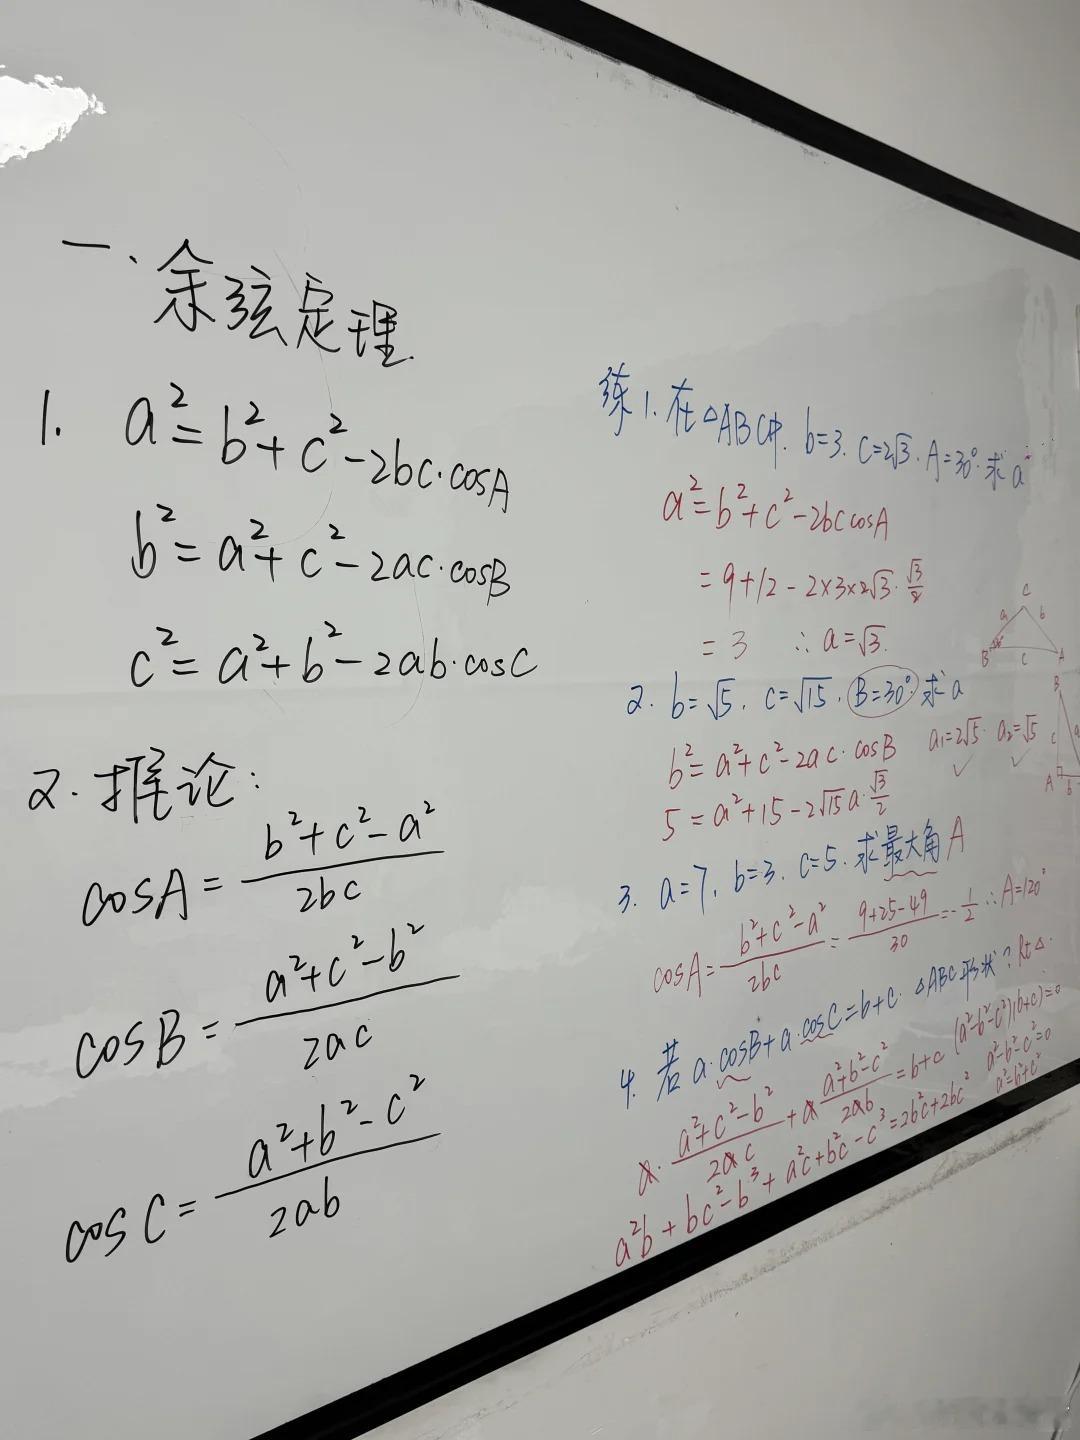 一、余弦定理.
1. a²=b²+c²-2bc·cosA
b²=a²+c²-2ac·cosB
c²=a²+b²-2ab·cosC
2.推论:
cosA=(b²+c²-a²)/2bc
cosB=(a²+c²-b²)/2ac
cosC=(a²+b²-c²)/2ab
练1.在△ABC中.b=3.c=2√3.A=30°.求a
a²=b²+c²-2bccosA
=9+12-2×3×2√3·√3/2
=3 ∴a=√3.
C
a b
B c A
2. b=√5. c=√15. B=30° 求a
b²=a²+c²-2ac·cosB a₁=2√5. a₂=√5
5=a²+15-2√15a·√3/2
B
c a
A b
3. a=7. b=3. c=5. 求最大角A
cosA=(b²+c²-a²)/2bc=(9+25-49)/30=-1/2 ∴A=120°
4.若a·cosB+a·cosC=b+c. △ABC形状?Rt△.
a·(a²+c²-b²)/2ac+a(a²+b²-c²)/2ab=b+c
a²b+bc²-b³+a²c+b²c-c³=2b²c+2bc²
(a²-b²-c²)(b+c)=0
a²-b²-c²=0
a²=b²+c²